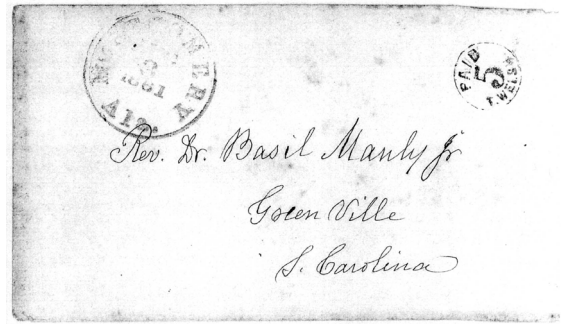 MONTGOMERY
3
1861
Ala.
PAID
5
T. WELSH
Rev. Dr. Basil Manly Jr
Green Ville
S. Carolina